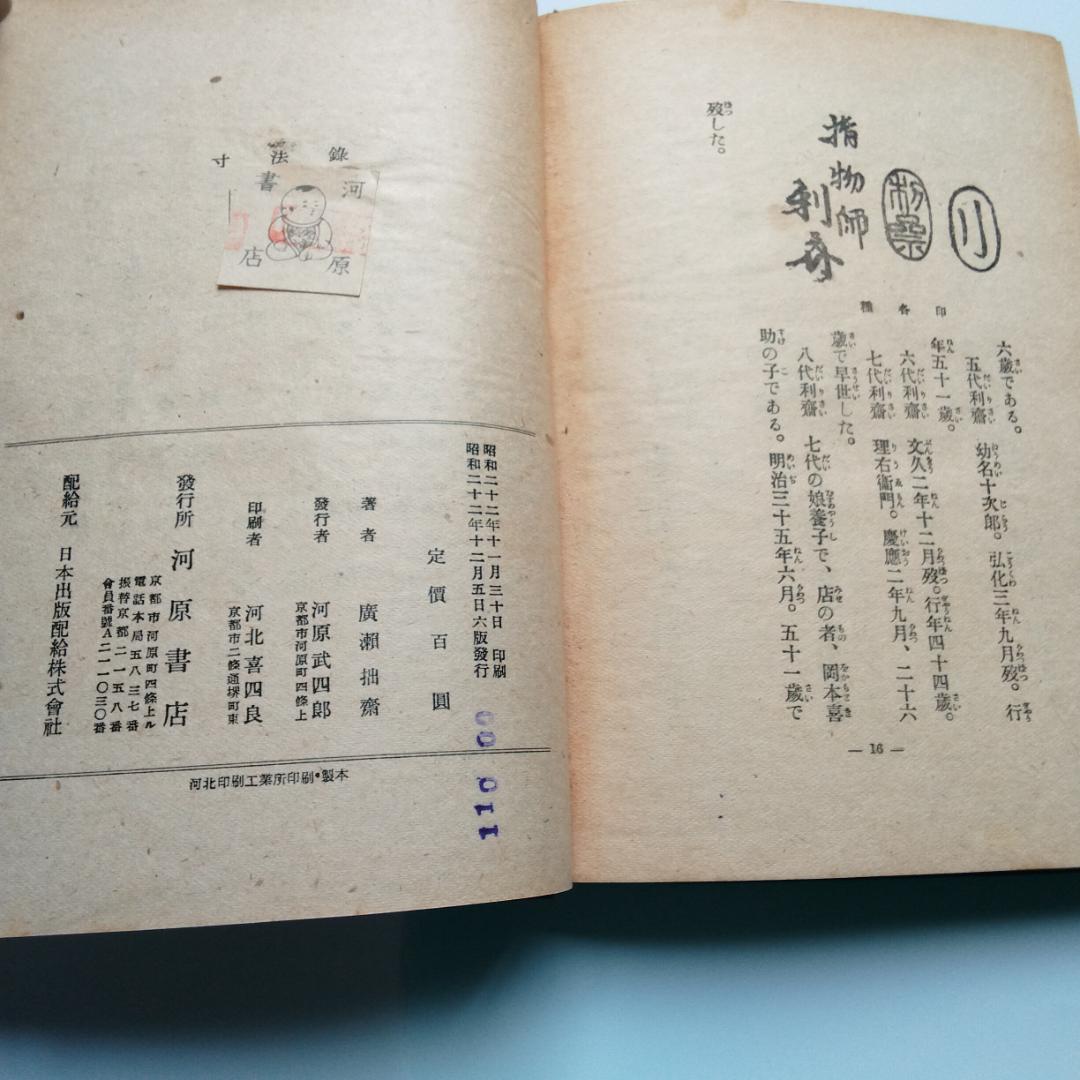 指物師
利斎
印各種
六歳である。
五代利齋　幼名十次郎。弘化三年九月歿。行
年五十一歳。
六代利齋　文久二年十二月歿。行年四十四歳。
七代利齋　理右衞門。慶應二年九月、二十六
歳で早世した。
八代利齋　七代の娘養子で、店の者、岡本喜
助の子である。明治三十五年六月。五十一歳で
歿した。
— 16 —
寸法錄
河原書店
昭和二十二年十一月三十日　印刷
昭和二十二年十二月五日六版發行
定價百圓
著者　廣瀨拙齋
發行者　河原武四郎
京都市河原町四條上
印刷者　河北喜四良
京都市二條通堺町東
發行所　河原書店
京都市河原町四條上ル
電話本局五八三七番
振替京都二一一五八番
會員番號A二一一〇三〇番
配給元　日本出版配給株式會社
河北印刷工業所印刷・製本
110 00